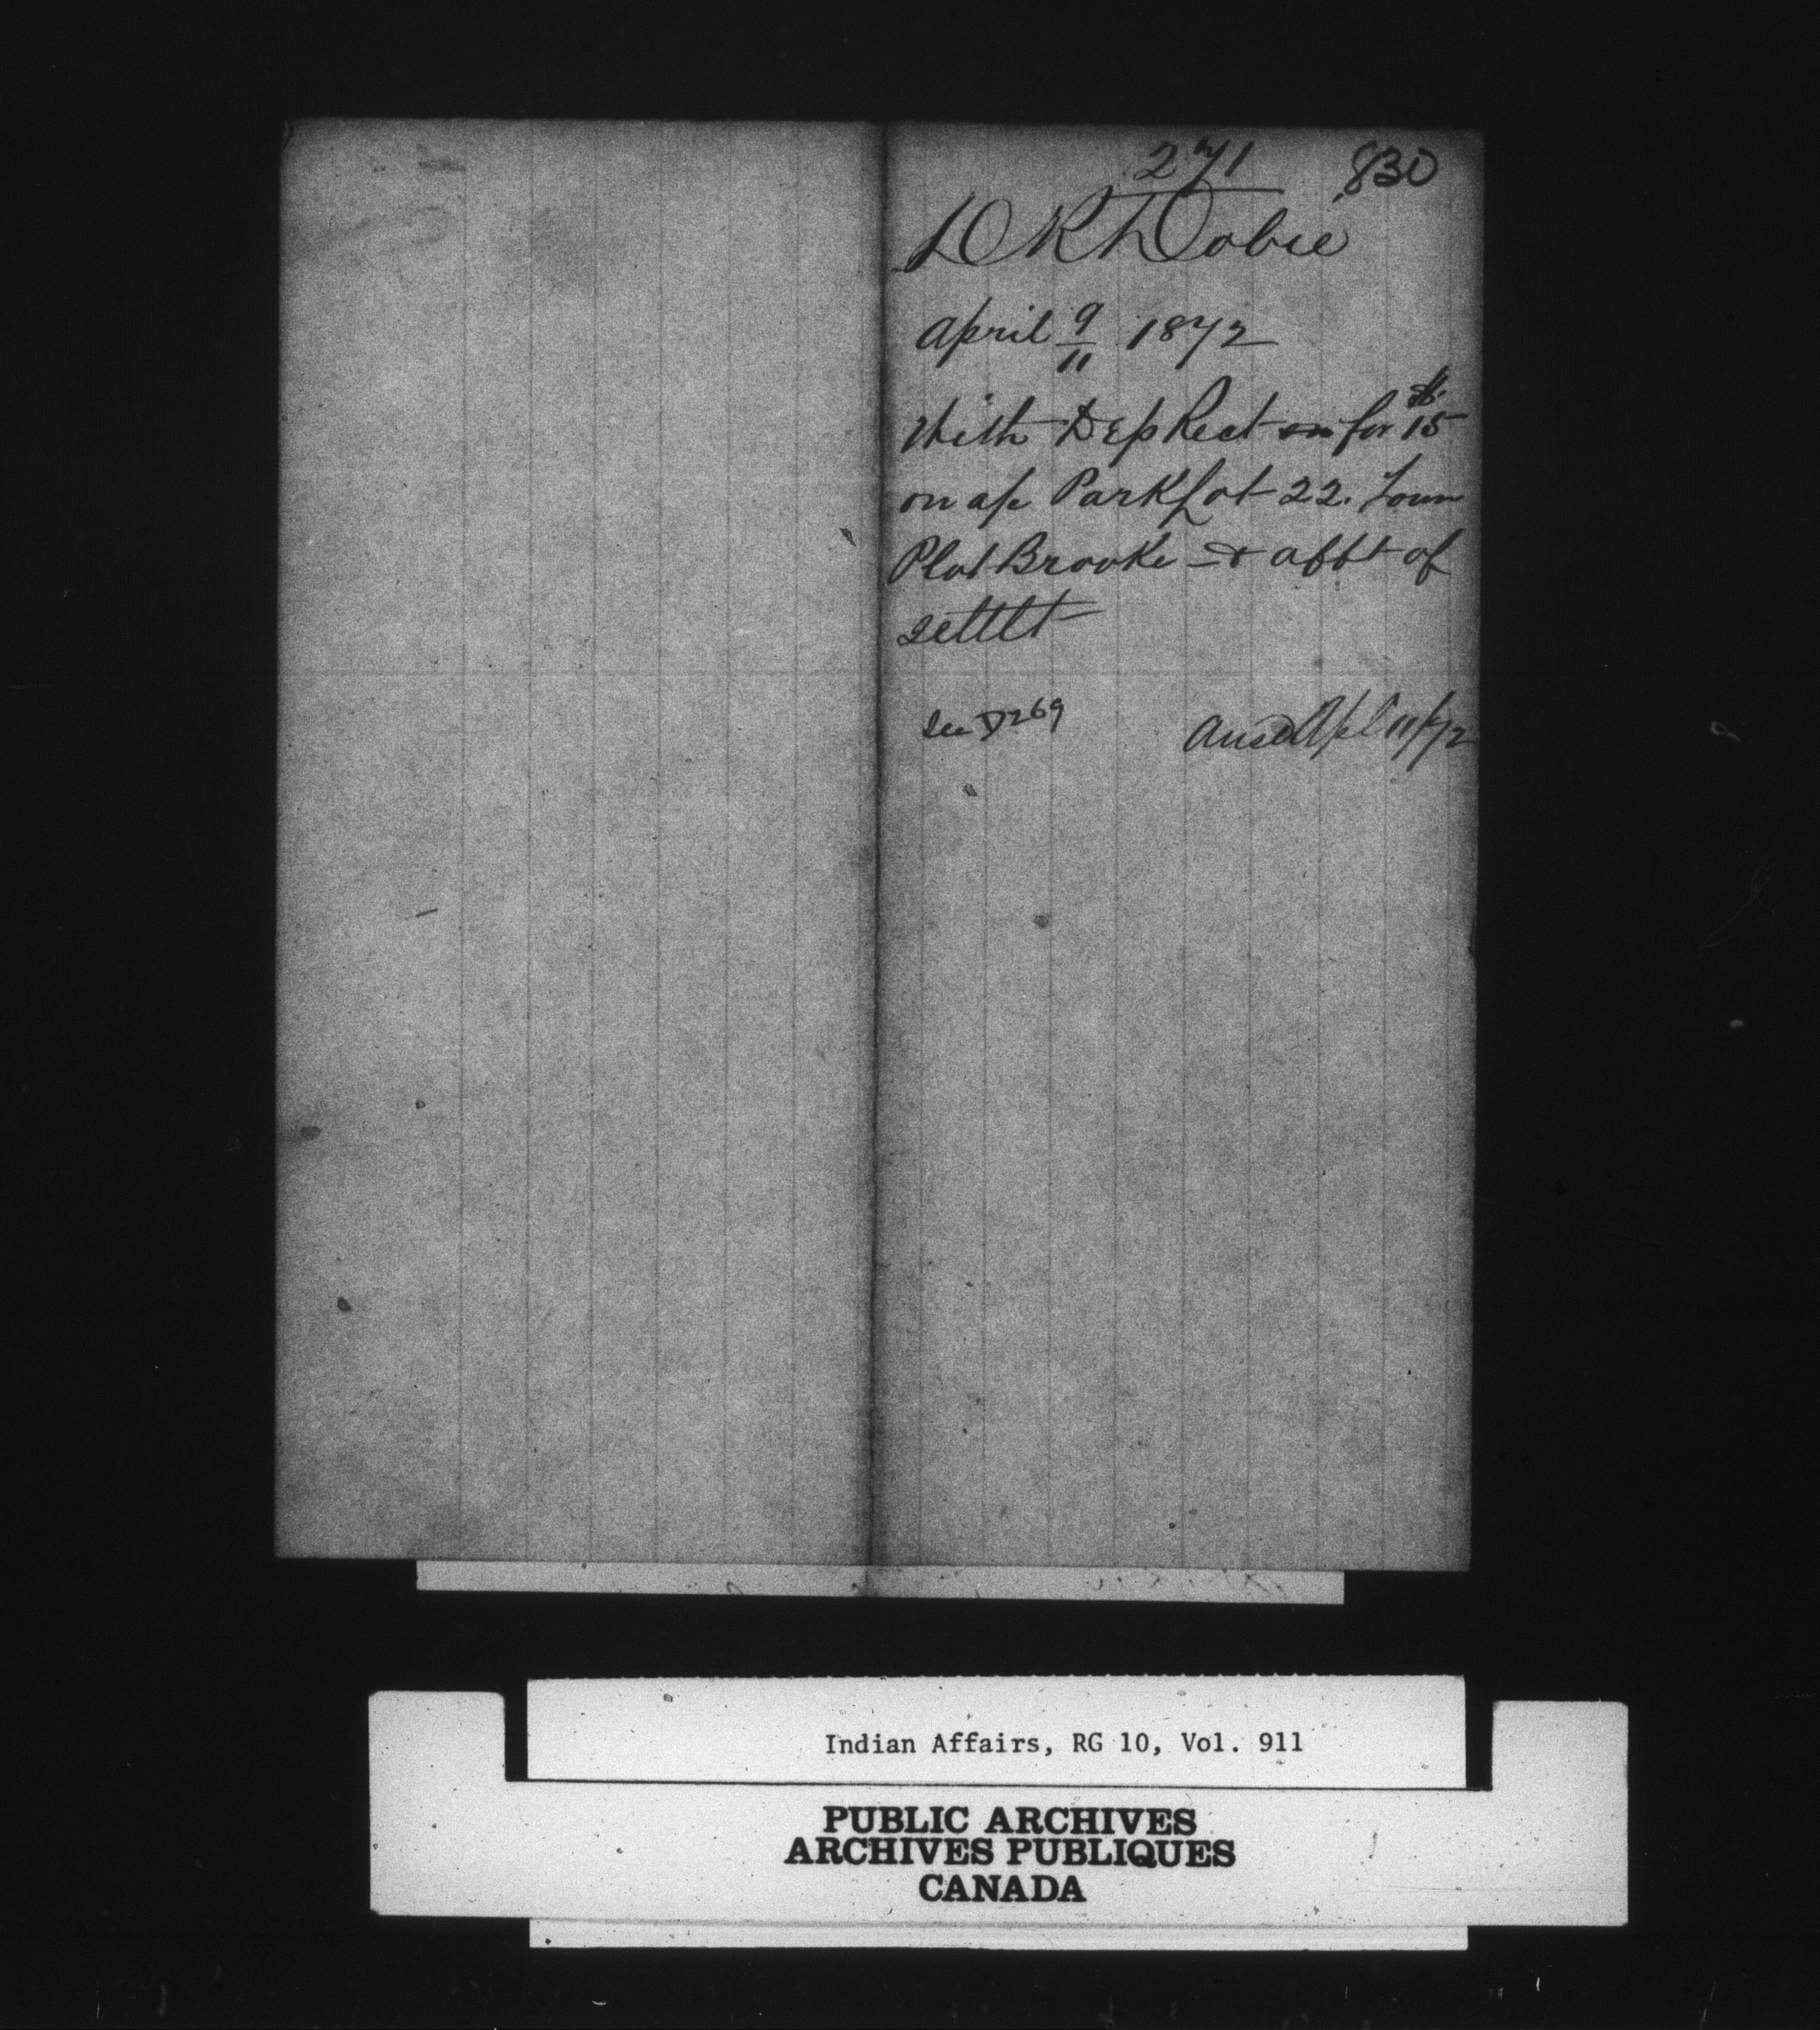 271 830
D K Dobie
April 9/11 1872
With Dep Rect on for $15
on a/c Park Lot 22. Town
Plot Brooke - & afft of
settlt
See D269 Ansd Apl 11/72
Indian Affairs, RG 10, Vol. 911
PUBLIC ARCHIVES
ARCHIVES PUBLIQUES
CANADA